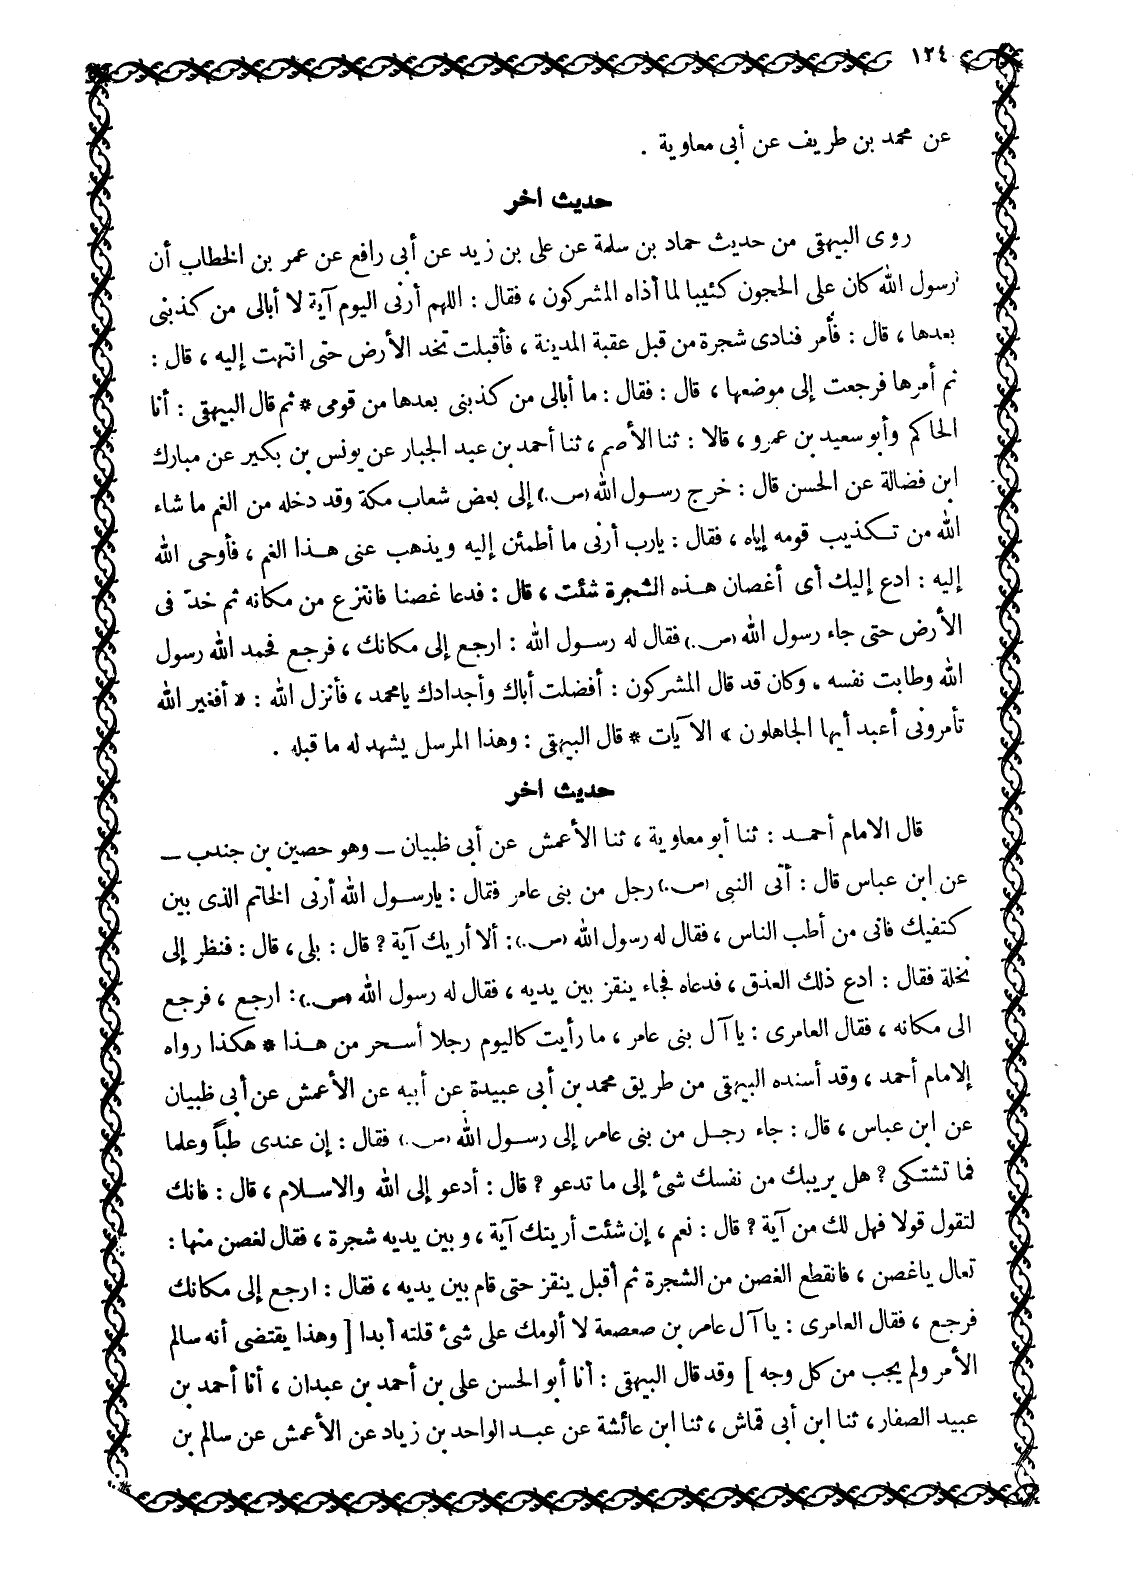 ١٢٤
عن محمد بن طريف عن أبى معاوية .
حديث آخر
روى البيهقى من حديث حماد بن سلمة عن على بن زيد عن أبى رافع عن عمر بن الخطاب أن
رسول الله كان على الحجون كئيبا لما أذاه المشركون ، فقال : اللهم أرنى اليوم آية لا أبالى من كذبنى
بعدها ، قال : فأمر فنادى شجرة من قبل عقبة المدينة ، فأقبلت تخد الأرض حتى انتهت إليه ، قال :
ثم أمرها فرجعت إلى موضعها ، قال : فقال : ما أبالى من كذبنى بعدها من قومى * ثم قال البيهقى : أنا
الحاكم وأبو سعيد بن عمرو ، قالا : ثنا الأصم ، ثنا أحمد بن عبد الجبار عن يونس بن بكير عن مبارك
ابن فضالة عن الحسن قال : خرج رسول الله (ص.) إلى بعض شعاب مكة وقد دخله من الغم ما شاء
الله من تكذيب قومه إياه ، فقال : يارب أرنى ما أطمئن إليه ويذهب عنى هذا الغم ، فأوحى الله
إليه : ادع إليك أى أغصان هذه الشجرة شئت ، قال : فدعا غصنا فانتزع من مكانه ثم خدّ فى
الأرض حتى جاء رسول الله (ص.) فقال له رسول الله : ارجع إلى مكانك ، فرجع فحمد الله رسول
الله وطابت نفسه ، وكان قد قال المشركون : أفضلت أباك وأجدادك يامحمد ، فأنزل الله : « أفغير الله
تأمرونى أعبد أيها الجاهلون » الآيات * قال البيهقى : وهذا المرسل يشهد له ما قبله .
حديث آخر
قال الامام أحمد : ثنا أبو معاوية ، ثنا الأعمش عن أبى ظبيان – وهو حصين بن جندب –
عن ابن عباس قال : أتى النبى (ص.) رجل من بنى عامر فقال : يارسول الله أرنى الخاتم الذى بين
كتفيك فانى من أطب الناس ، فقال له رسول الله (ص.) : ألا أريك آية ? قال : بلى ، قال : فنظر إلى
نخلة فقال : ادع ذلك العذق ، فدعاه فجاء ينقز بين يديه ، فقال له رسول الله (ص.) : ارجع ، فرجع
الى مكانه ، فقال العامرى : يا آل بنى عامر ، ما رأيت كاليوم رجلا أسحر من هذا * هكذا رواه
الإمام أحمد ، وقد أسنده البيهقى من طريق محمد بن أبى عبيدة عن أبيه عن الأعمش عن أبى ظبيان
عن ابن عباس ، قال : جاء رجل من بنى عامر إلى رسول الله (ص.) فقال : إن عندى طباً وعلما
فما تشتكى ? هل يريبك من نفسك شىء إلى ما تدعو ? قال : أدعو إلى الله والاسلام ، قال : فانك
لتقول قولا فهل لك من آية ? قال : نعم ، إن شئت أريتك آية ، وبين يديه شجرة ، فقال لغصن منها :
تعال ياغصن ، فانقطع الغصن من الشجرة ثم أقبل ينقز حتى قام بين يديه ، فقال : ارجع إلى مكانك
فرجع ، فقال العامرى : يا آل عامر بن صعصعة لا ألومك على شىء قلته أبدا [ وهذا يقتضى أنه سالم
الأمر ولم يجب من كل وجه ] وقد قال البيهقى : أنا أبو الحسن على بن أحمد بن عبدان ، أنا أحمد بن
عبيد الصفار ، ثنا ابن أبى قماش ، ثنا ابن عائشة عن عبد الواحد بن زياد عن الأعمش عن سالم بن